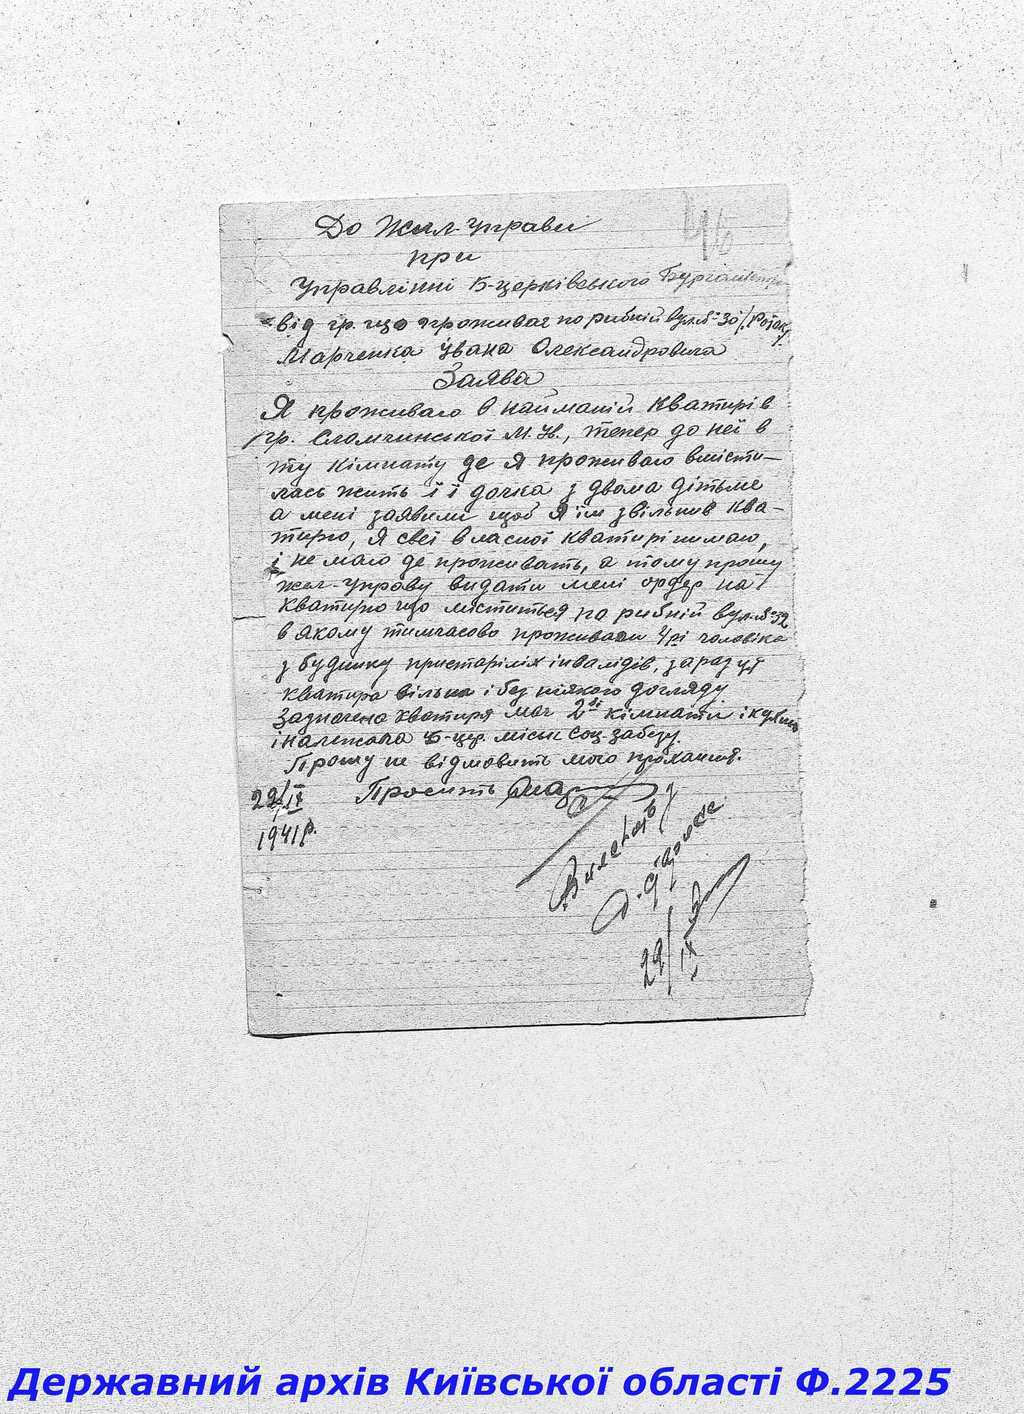 46
До Жил-Управи
при
Управлінні Б-церківського
від гр. що проживає по рибній вул. № 30
Марченка Івана Олександровича
Заява
Я проживаю в найманій квартирі в
гр. Сломчинської М. Ив., тепер до неї в
ту кімнату де я проживаю вмісти-
лась жить її дочка з двома дітьме
а мені заявили щоб я їм звільнив ква-
тирю, я свеї власної квартирі нимаю,
і не маю де проживать, а тому прошу
жил-Управу видати мені ордер на
квартирю що міститься по рибній вул. № 32
в якому тимчасово проживали 4рі чоловіка
з будинку пристарілих інвалідів, зараз ця
квартира вільна і без ніякого догляду
Зазначена квартиря має 2ві кімнати і кухню
і належала Б-цер. міськ соц-забезу.
Прошу не відмовить мого прохання.
22/IX Просить
1941 р.
22/IX
Державний архів Київської області Ф.2225